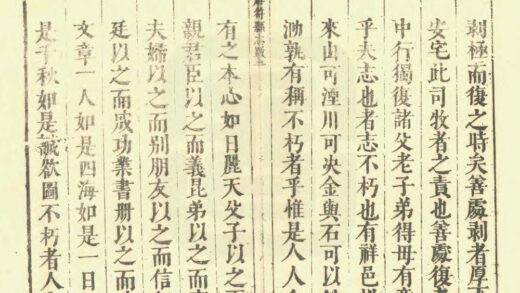 剥極而復之時矣善處剥者厚
安宅此司牧者之責也善處復
中行獨復諸父老子弟得毋有
乎夫志也者志不朽也有祥邑
來山可湮川可决金與石可以
泐孰有稱不朽者乎惟是人人
符縣志
有之本心如日麗天父子以之
親君臣以之而義昆弟以之而
夫婦以之而别朋友以之而信
廷以之而成功業書册以之而
文章一人如是四海如是一日
是千秋如是誠欲圖不朽者人